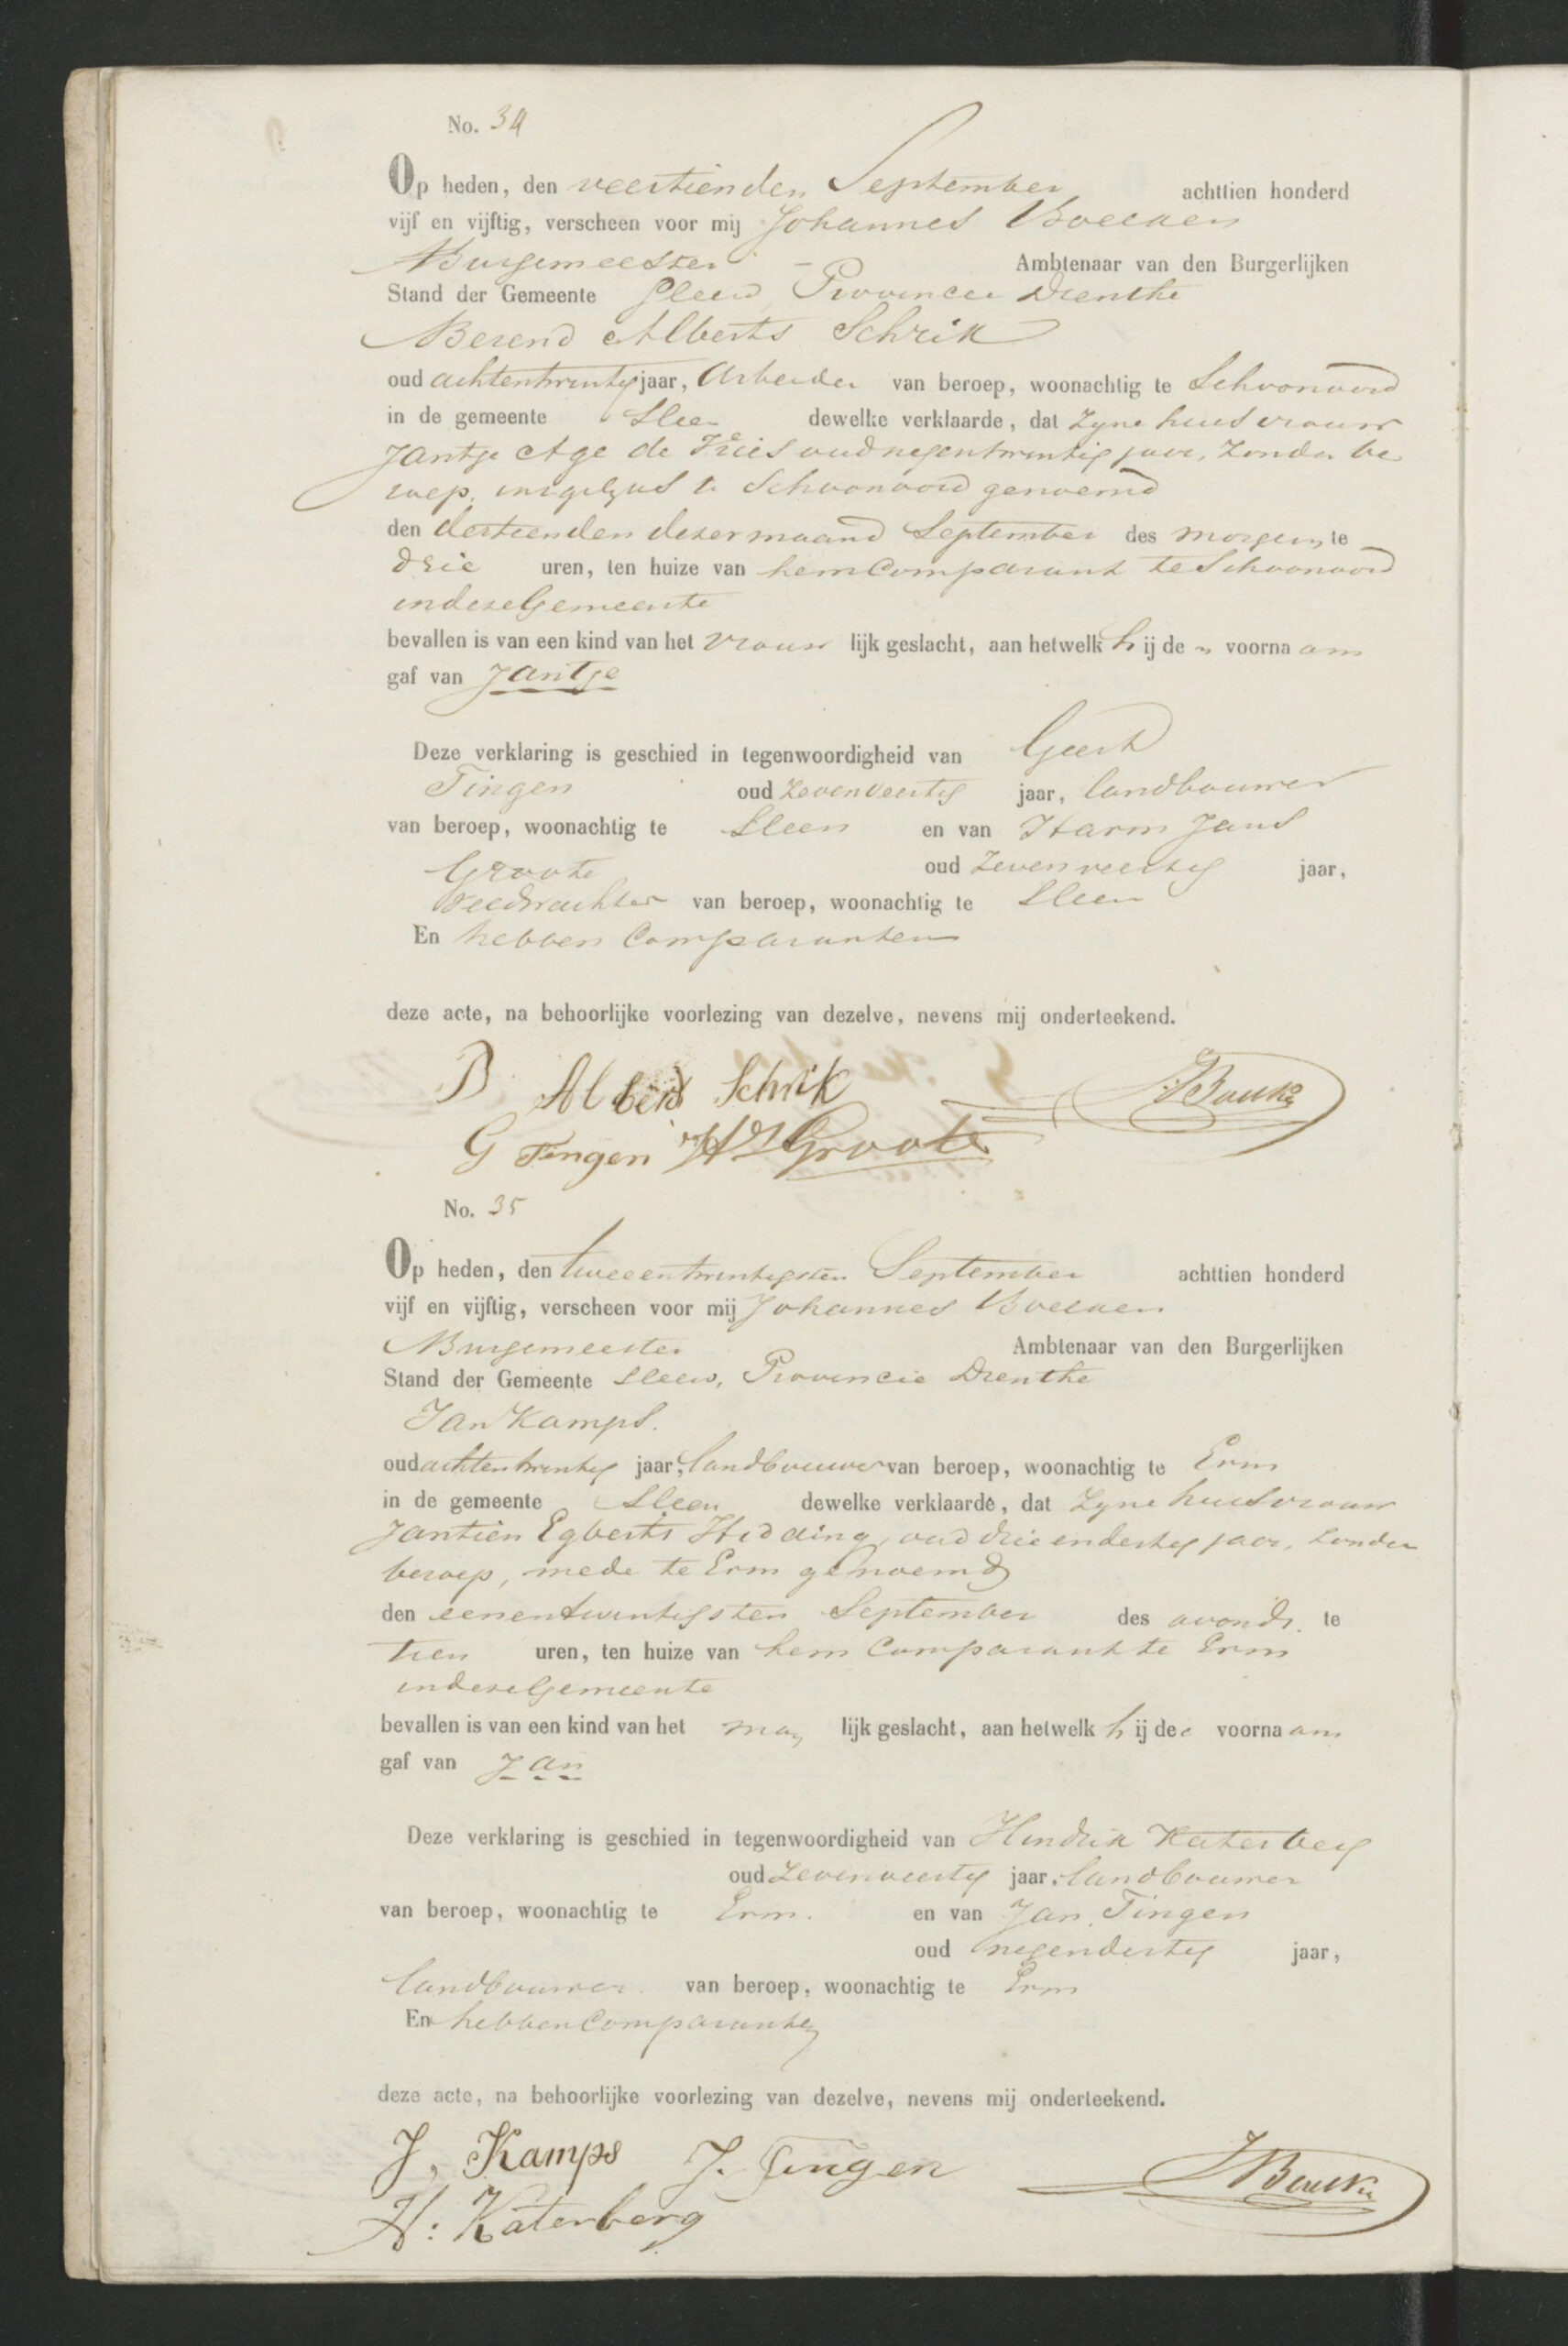 No. 34
Op heden, den veertienden September achttien honderd
vijf en vijftig, verscheen voor mij Johannes Boelken
Burgemeester - Ambtenaar van den Burgerlijken
Stand der Gemeente Sleen, Provincie Drenthe
Berend Alberts Schrik
oud achtentwintig jaar, Arbeider van beroep, woonachtig te Schoonoord
in de gemeente Sleen dewelke verklaarde, dat Zyne huisvrouw
Jantje Age de Vries oud negentwintig jaar, Zonder be
roep, insgelyks te Schoonoord genoemd
den dertienden dezer maand September des morgens te
drie uren, ten huize van hem Comparant te Schoonoord
in deze Gemeente
bevallen is van een kind van het vrouw lijk geslacht, aan hetwelk h ij de n voorna am
gaf van Jantje
Deze verklaring is geschied in tegenwoordigheid van Geert
Tingen oud Zevenveertig jaar, landbouwer
van beroep, woonachtig te Sleen en van Harm Jans
Groote oud Zevenveertig jaar,
Veldwachter van beroep, woonachtig te Sleen
En hebben Comparanten
deze acte, na behoorlijke voorlezing van dezelve, nevens mij onderteekend.
B Alberts Schrik
G Tingen HJ Groote
No. 35
Op heden, den tweeentwintigsten September achttien honderd
vijf en vijftig, verscheen voor mij Johannes Boelken
Burgemeester Ambtenaar van den Burgerlijken
Stand der Gemeente Sleen, Provincie Drenthe
Jan Kamps.
oud achtentwintig jaar, landbouwer van beroep, woonachtig te Erm
in de gemeente Sleen dewelke verklaarde, dat Zyne huisvrouw
Jantien Egberts Hidding, oud drieendertig jaar, Zonder
beroep, mede te Erm genoemd
den eenentwintigsten September des avonds. te
tien uren, ten huize van hem Comparant te Erm
in deze Gemeente
bevallen is van een kind van het man lijk geslacht, aan hetwelk h ij de voorna am
gaf van Jan
Deze verklaring is geschied in tegenwoordigheid van Hendrik Katerberg
oud Zevenveertig jaar, landbouwer
van beroep, woonachtig te Erm. en van Jan Tingen
oud negendertig jaar,
landbouwer van beroep, woonachtig te Erm
En hebben Comparanten
deze acte, na behoorlijke voorlezing van dezelve, nevens mij onderteekend.
J, Kamps J. Tingen
H: Katerberg